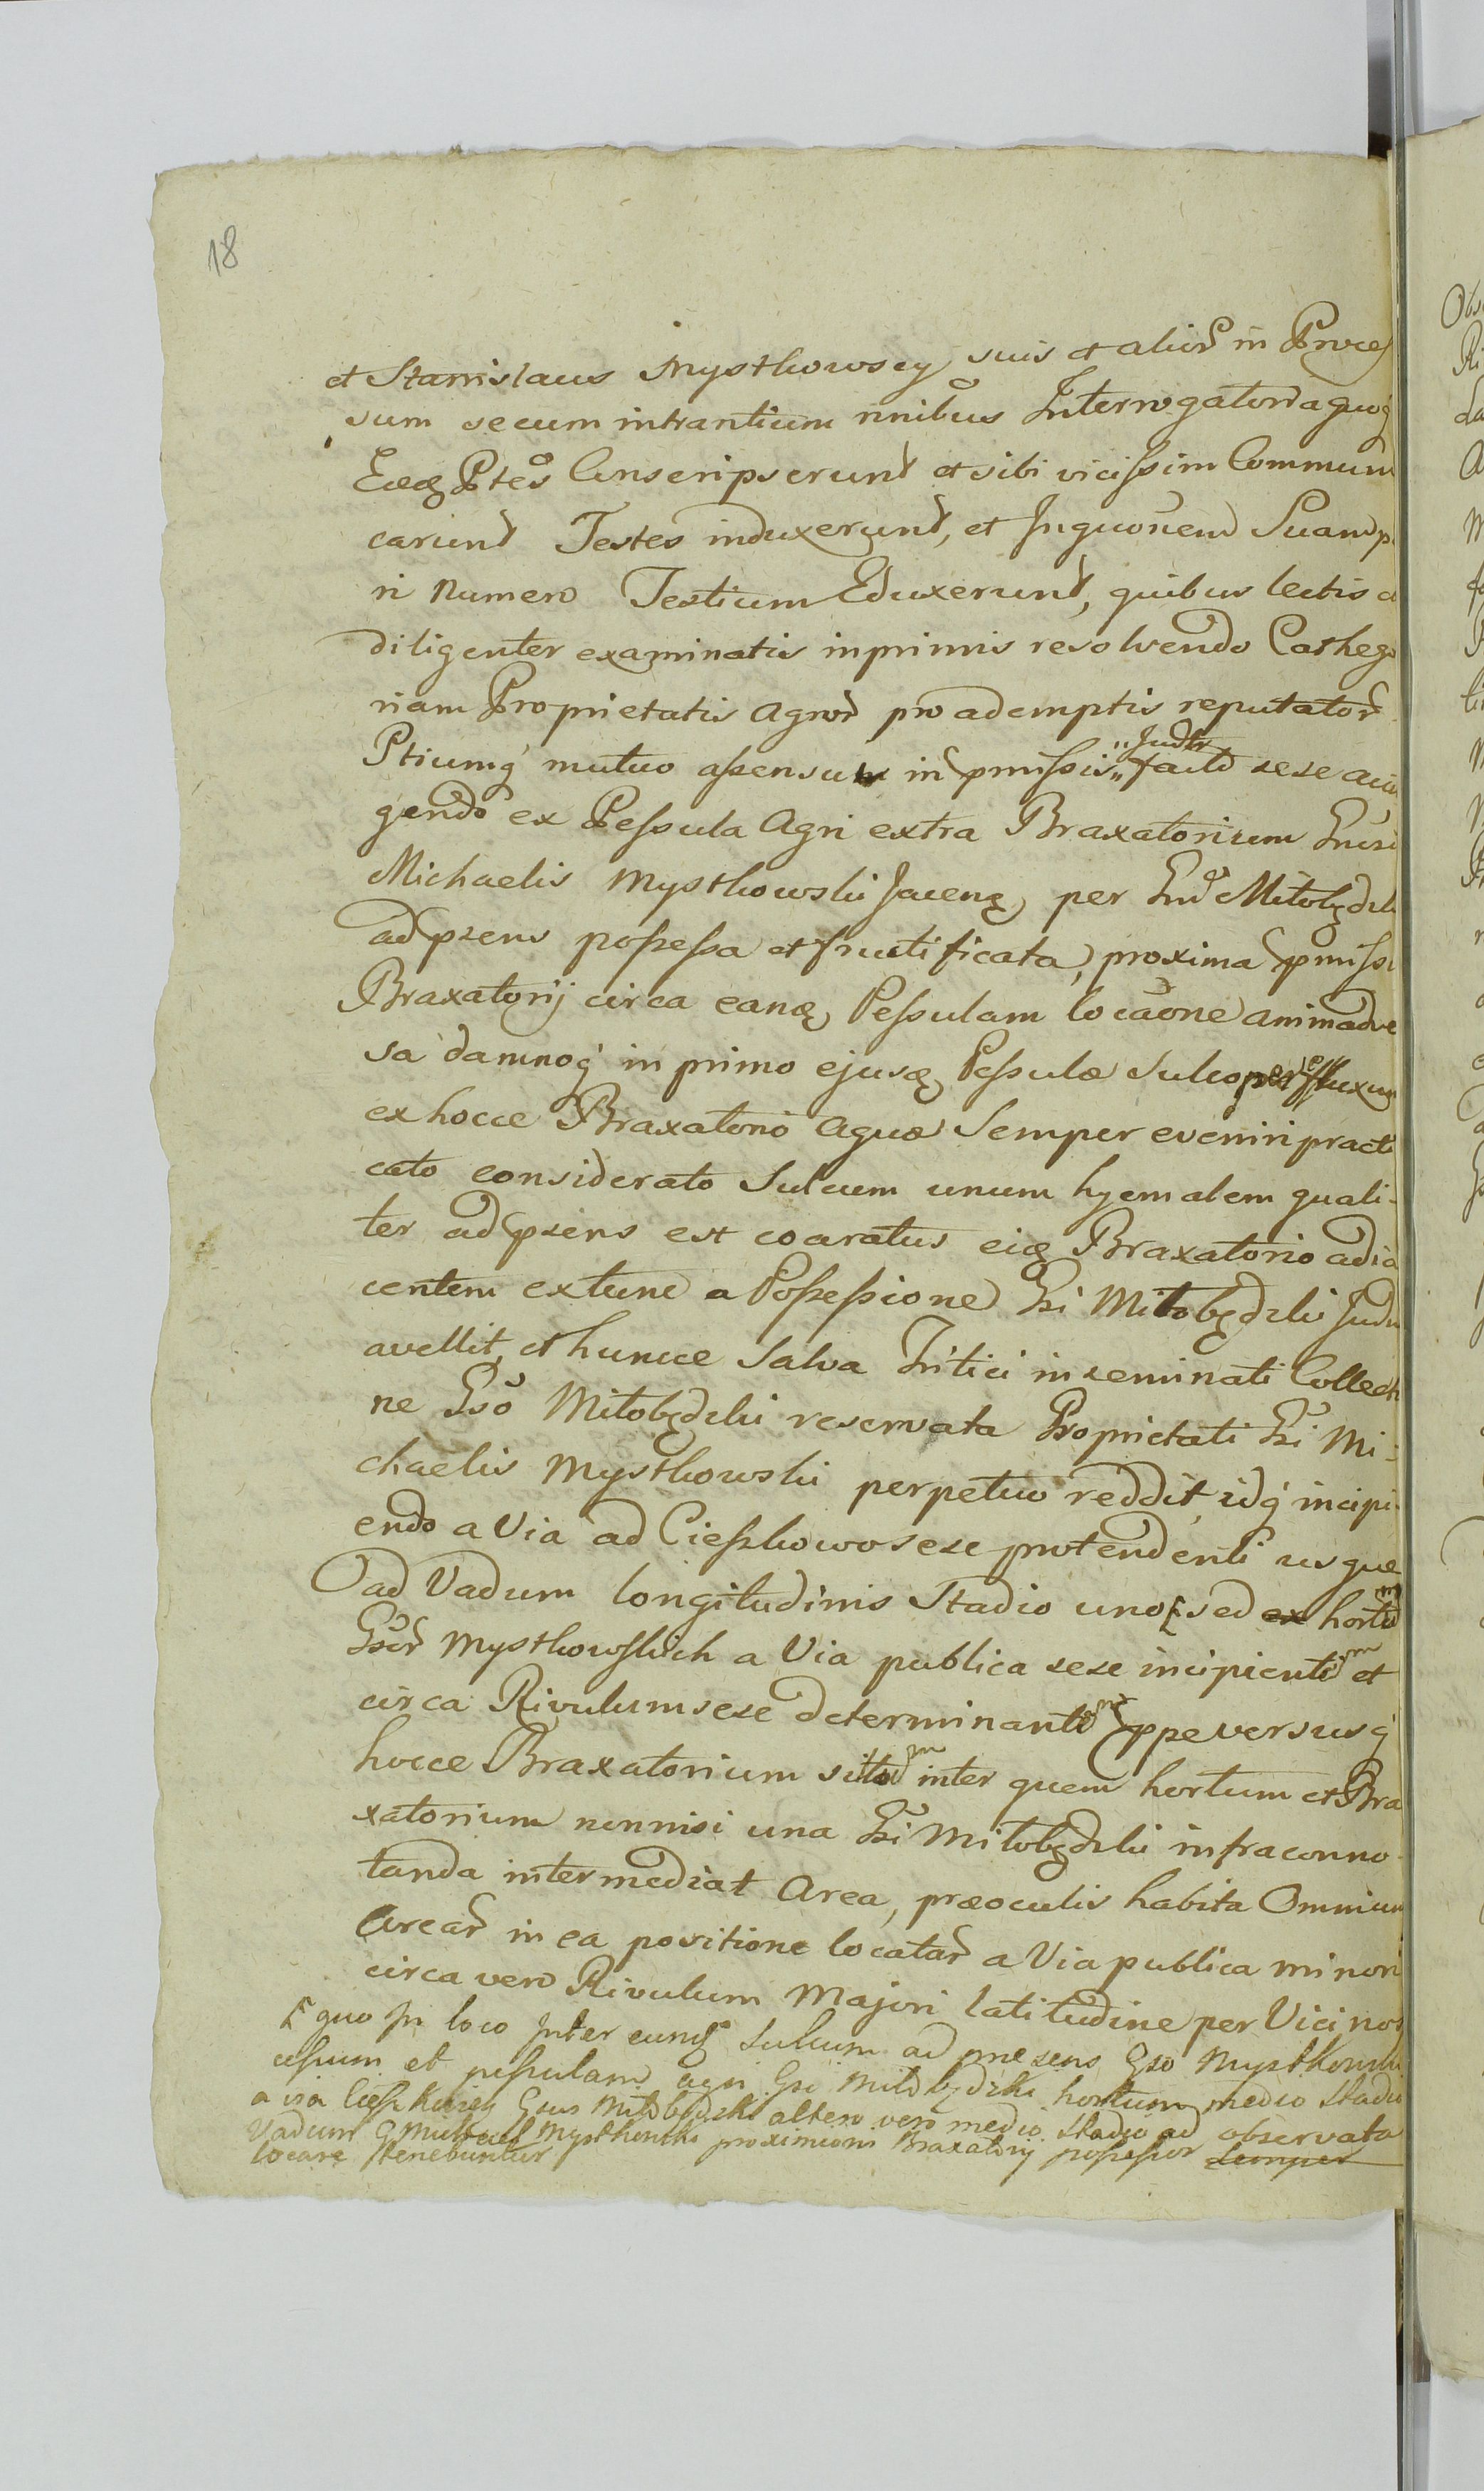 18
et Stanislaus Mysthowscy suis et alior in Proces
sum secum intrantium nnibus Interrogatoria quoq
Eaeq Ptes Conscripserunt et sibi vicissim Commun
carunt Testes induxerunt, et Inquonem Suam p
ri numero Testium Eduxerunt, quibus lectis a
diligenter examinatis inprimis resolvendo Cathego
riam Proprietatis Agror pro ademptis reputator
Ptiumq mutuo assensu in pmissis „ Judtr facto sese accin
gendo ex Pessula Agri extra Braxatorium Gnesi
Michaelis Mysthowski Jacenq per Gnd Mitobędzki
ad psens possessa et fructificata, proxima pmissi
Braxatorij circa eanq Pessulam locaone animadve
sa damnoq in primo ejusq Pessulæ Sulco per effluxum
ex hocce Braxatorio Aquæ Semper eveniri practi
cato considerato Sulcum unum hyemalem quali-
ter ad psens est coaratus eiq Braxatorio adia
centem extunc a Possessione Gsi Mitobędzki Judm
avellit, et huncce Salva Tritici inseminati Collecti
ne Gso Mitobędzki reservata Proprietati Gsi Mi-
chaelis Mysthowski perpetuo reddit, idq incipi-
endo a Via ad Cieszkowo sese protendenti usque
ad Vadum longitudinis Stadio uno sed ex horto m
Gsor Mysthowskich a Via publica sese incipienti m et
circa Rivulum sese determinanti m ppe versusq
hocce Braxatorium sito m inter quem hortum et Bra
xatorium nonnisi una Gsi Mitobędzki infraconno-
tanda intermediat Area, præoculis habita Omnium
Arear in ea positione locatar a Via publica minori
circa vero Rivulum Majori latitudine per Vicinos
quo in loco Inter eunq Sulcum ad præsens Gso Mystkowski
cessum et pessulam agri Gsi Mitobędzki hortum medio Stadio
a via Cieszkowsq Gsus Mitobędzki altero vero medio Stadio ad observata
Vadum G Michael Mystkowski proximiori Braxatorij possessor Semper
locare tenebuntur